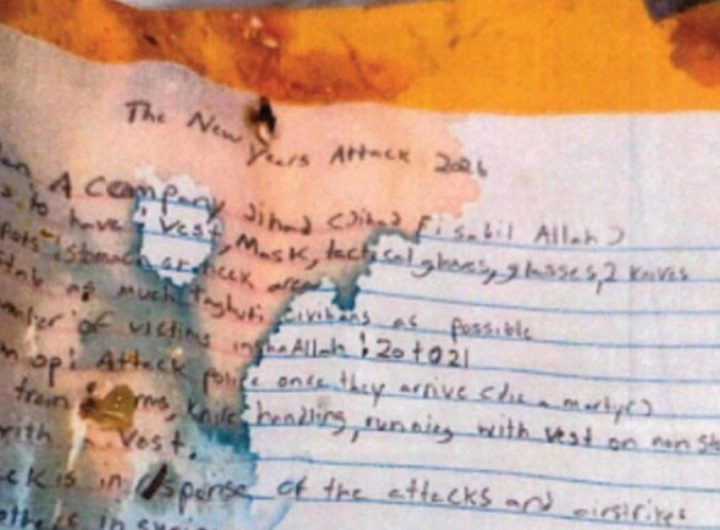 The New Years Attack 2026
A Company Jihad (Jihad fi sabil Allah)
to have: Vest, Mask, tactical gloves, glasses, 2 knives
stomach or neck area
as much taghuti civilians as possible
of victims inshaAllah: 20 to 21
op: Attack police once they arrive (die a martyr)
train, knife handling, running with vest on non
with Vest.
is in response of the attacks and airstrikes
in